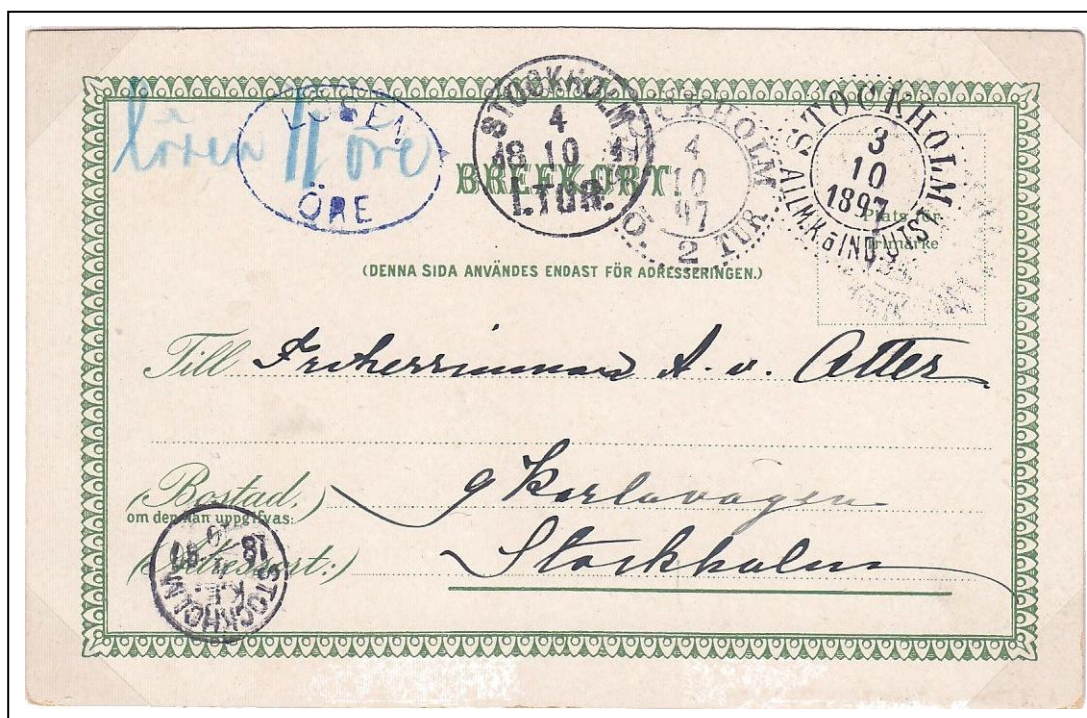 lösen 11 öre
LÖSEN
ÖRE
STOCKHOLM
4
18 10 97
1.TUR.
STOCKHOLM
4
10
97
Ö. 2 TUR.
STOCKHOLM
3
10
1897
ALLM.K&IND.UTST
Plats för
frimärke
BREFKORT.
(DENNA SIDA ANVÄNDES ENDAST FÖR ADRESSERINGEN.)
Till Friherrinnan A. v. Otter
(Bostad,
om den kan uppgifvas:)
9 Karlavägen
(Adressort:)
Stockholm
STOCKHOLM
18 97
K.E.